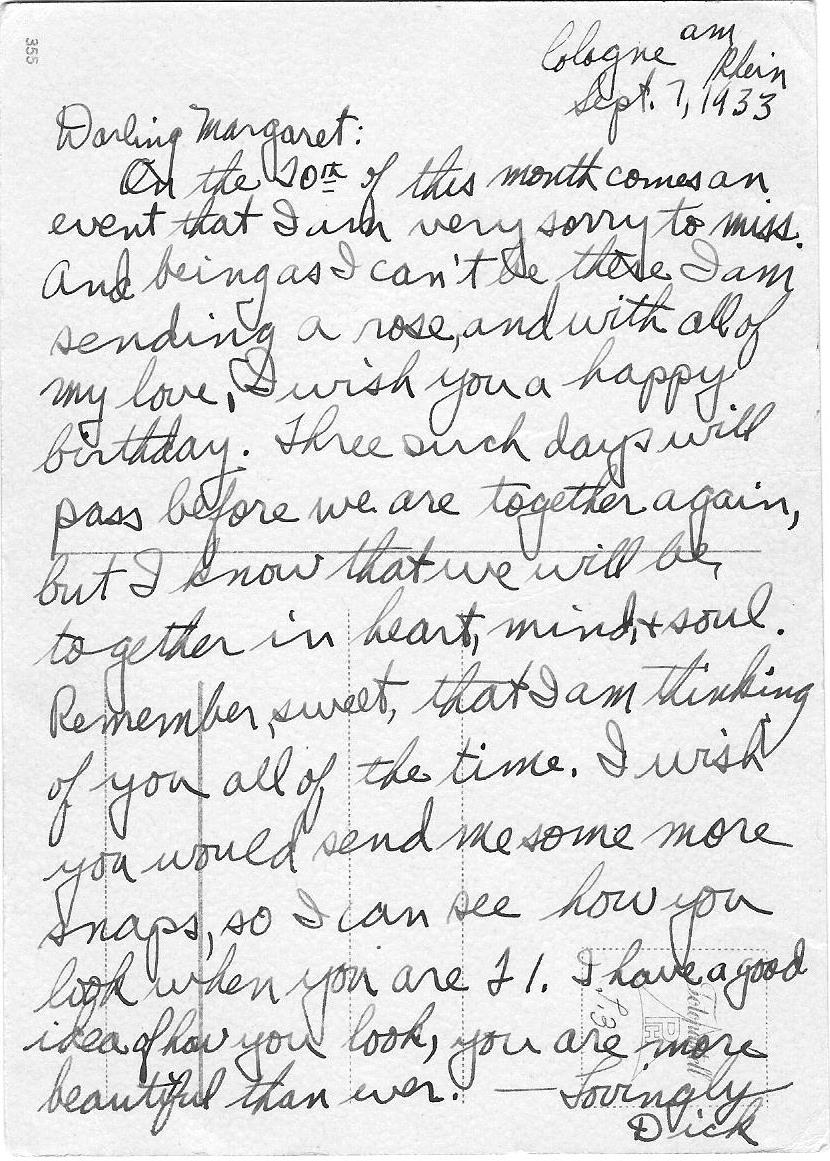 355
Cologne am
Rhein
Sept. 7, 1933
Darling Margaret:
On the 20th of this month comes an
event that I am very sorry to miss.
And being as I can't be there I am
sending a rose, and with all of
my love, I wish you a happy
birthday. Three such days will
pass before we are together again,
but I know that we will be
together in heart, mind, + soul.
Remember, sweet, that I am thinking
of you all of the time. I wish
you would send me some more
snaps, so I can see how you
look when you are 21. I have a good
idea of how you look, you are more
beautiful than ever. — Lovingly
Dick